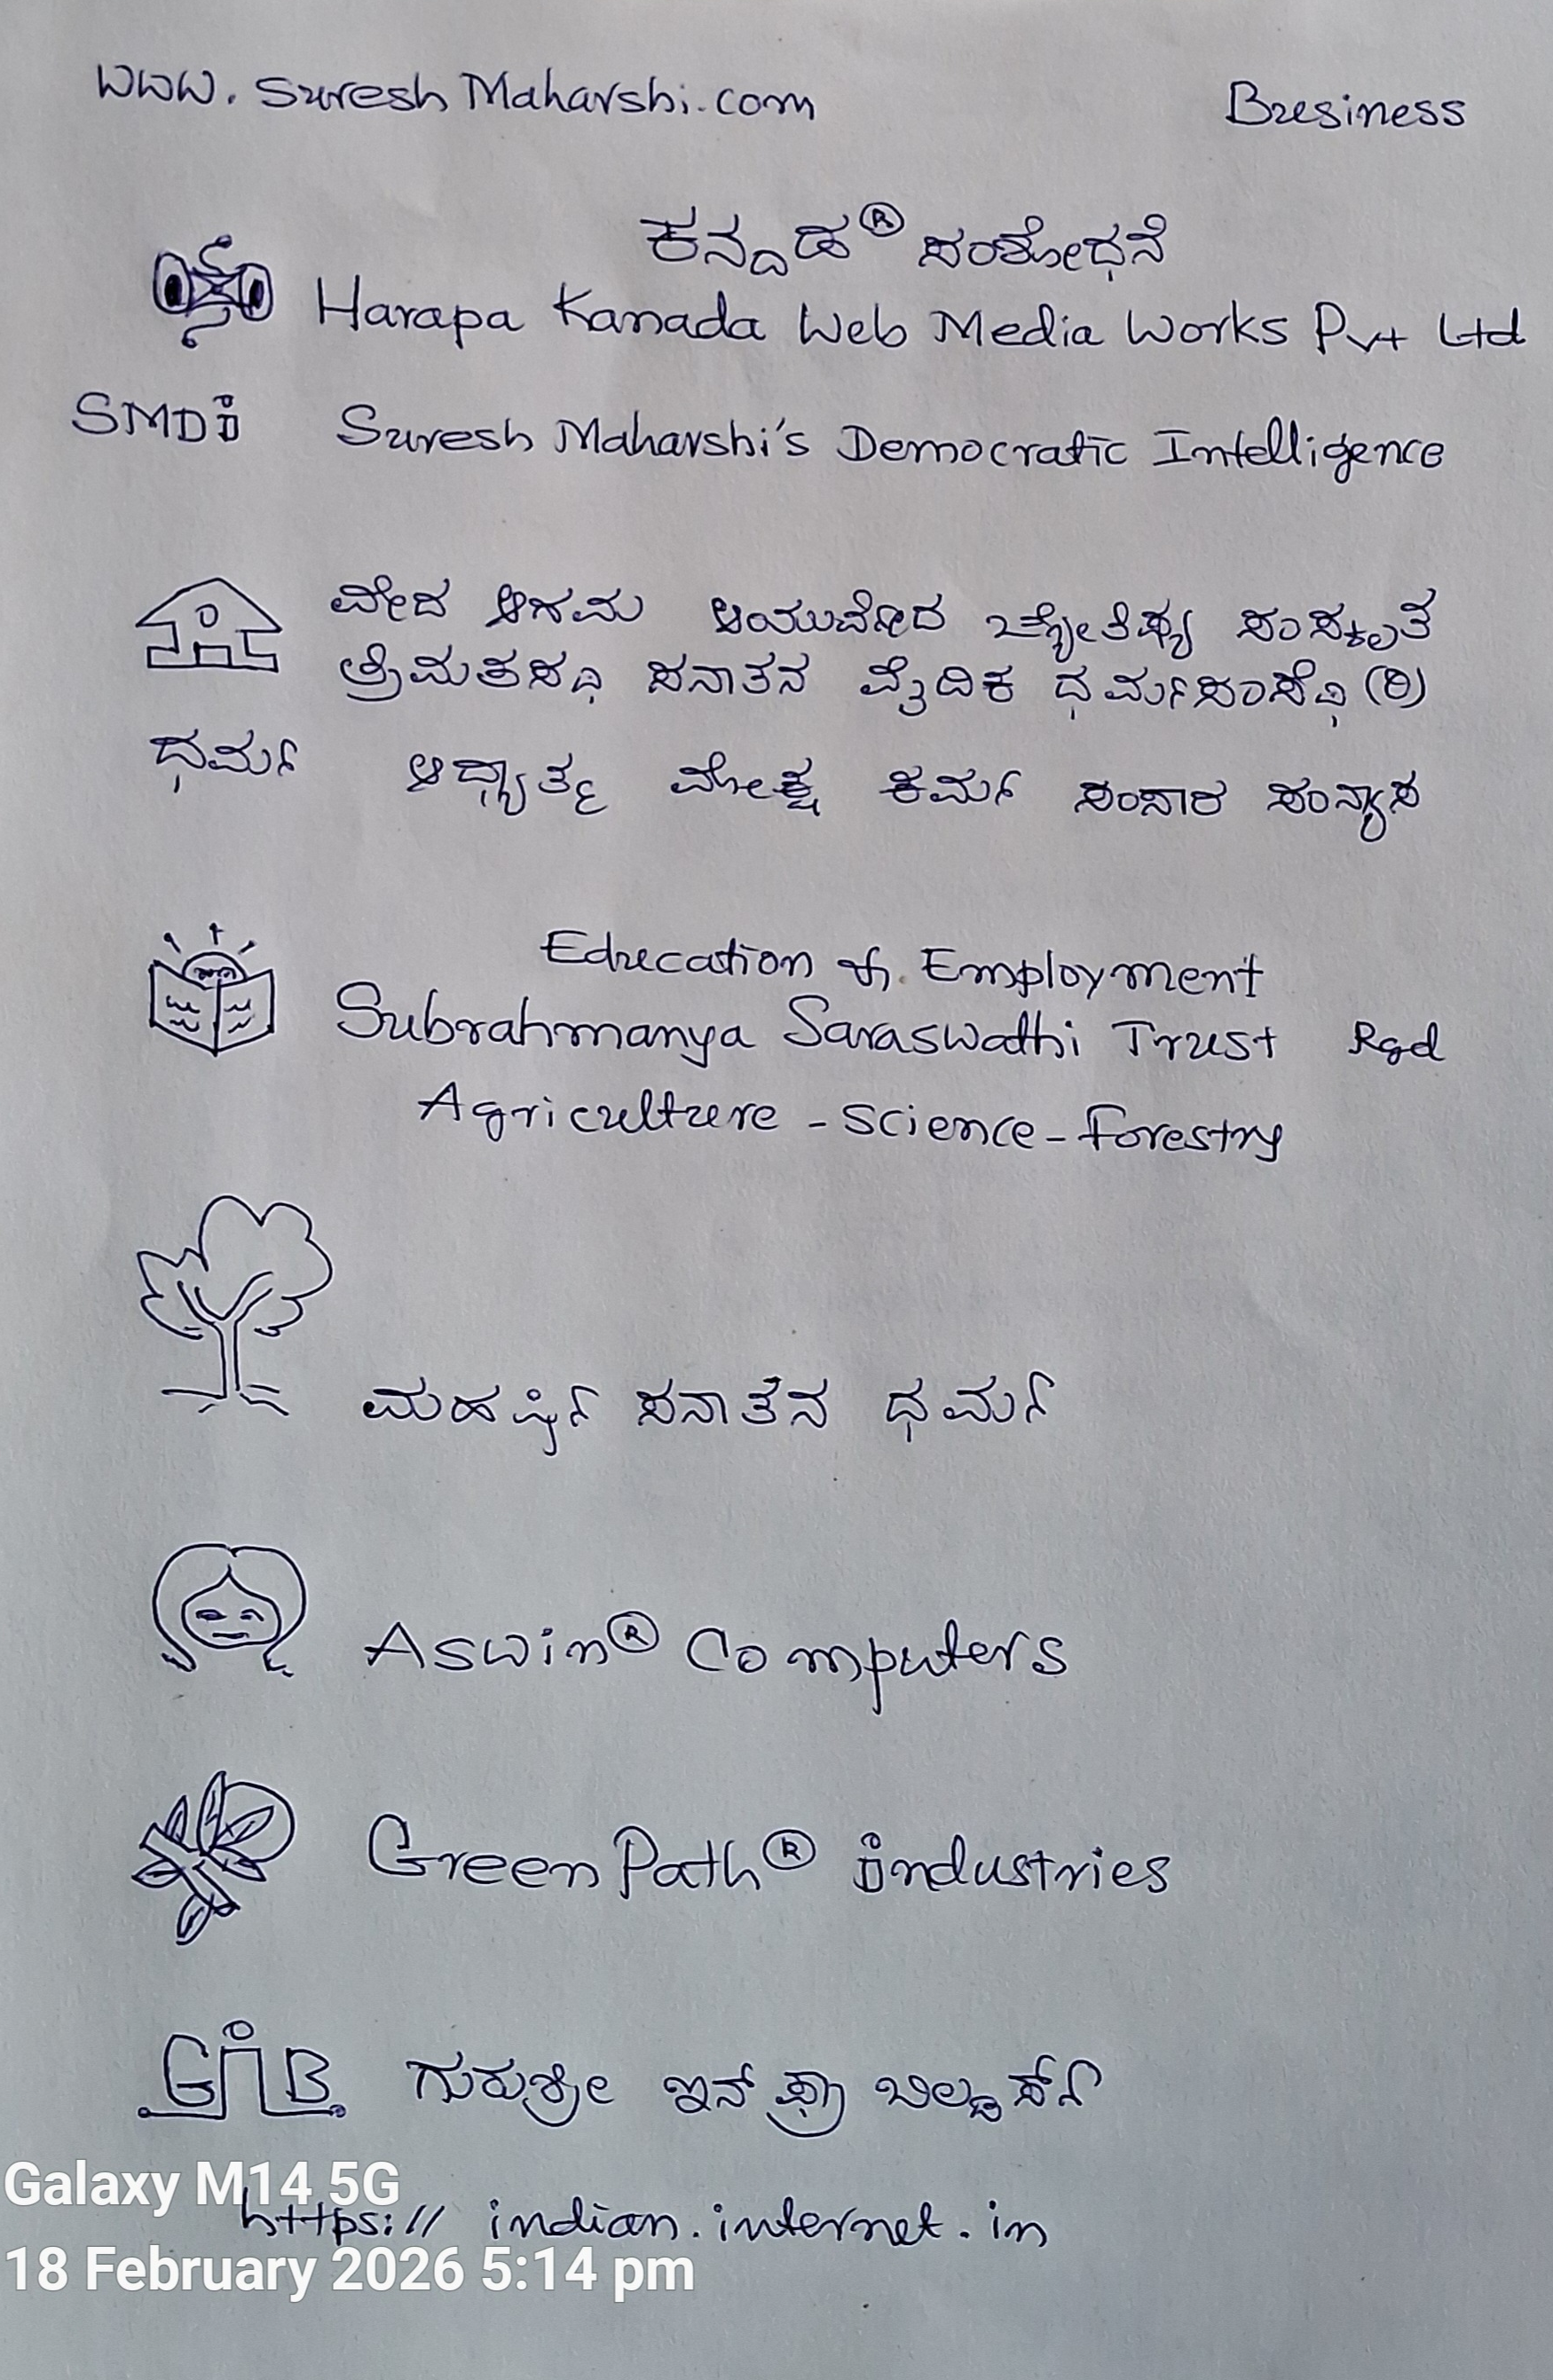 www.SureshMaharshi.com Business
ಕನ್ನಡ® ಸಂಶೋಧನೆ
Harapa Kannada Web Media Works Pvt Ltd
SMDi Suresh Maharshi's Democratic Intelligence
ವೇದ ಆಗಮ ಆಯುರ್ವೇದ ಜ್ಯೋತಿಷ್ಯ ಸಂಸ್ಕೃತ
ತ್ರಿಮತಸ್ಥ ಸನಾತನ ವೈದಿಕ ಧರ್ಮಸಂಸ್ಥೆ (ರಿ)
ಧರ್ಮ ಆಧ್ಯಾತ್ಮ ಮೋಕ್ಷ ಕರ್ಮ ಸಂಸಾರ ಸಂನ್ಯಾಸ
Education & Employment
Subrahmanya Saraswathi Trust Rgd
Agriculture - Science - Forestry
ಮಹರ್ಷಿ ಸನಾತನ ಧರ್ಮ
Aswin® Computers
GreenPath® industries
GiB ಗುರುಶ್ರೀ ಇನ್ ಫ್ರಾ ಬಿಲ್ಡರ್ಸ್
Galaxy M14 5G
https:// indian.internet.in
18 February 2026 5:14 pm